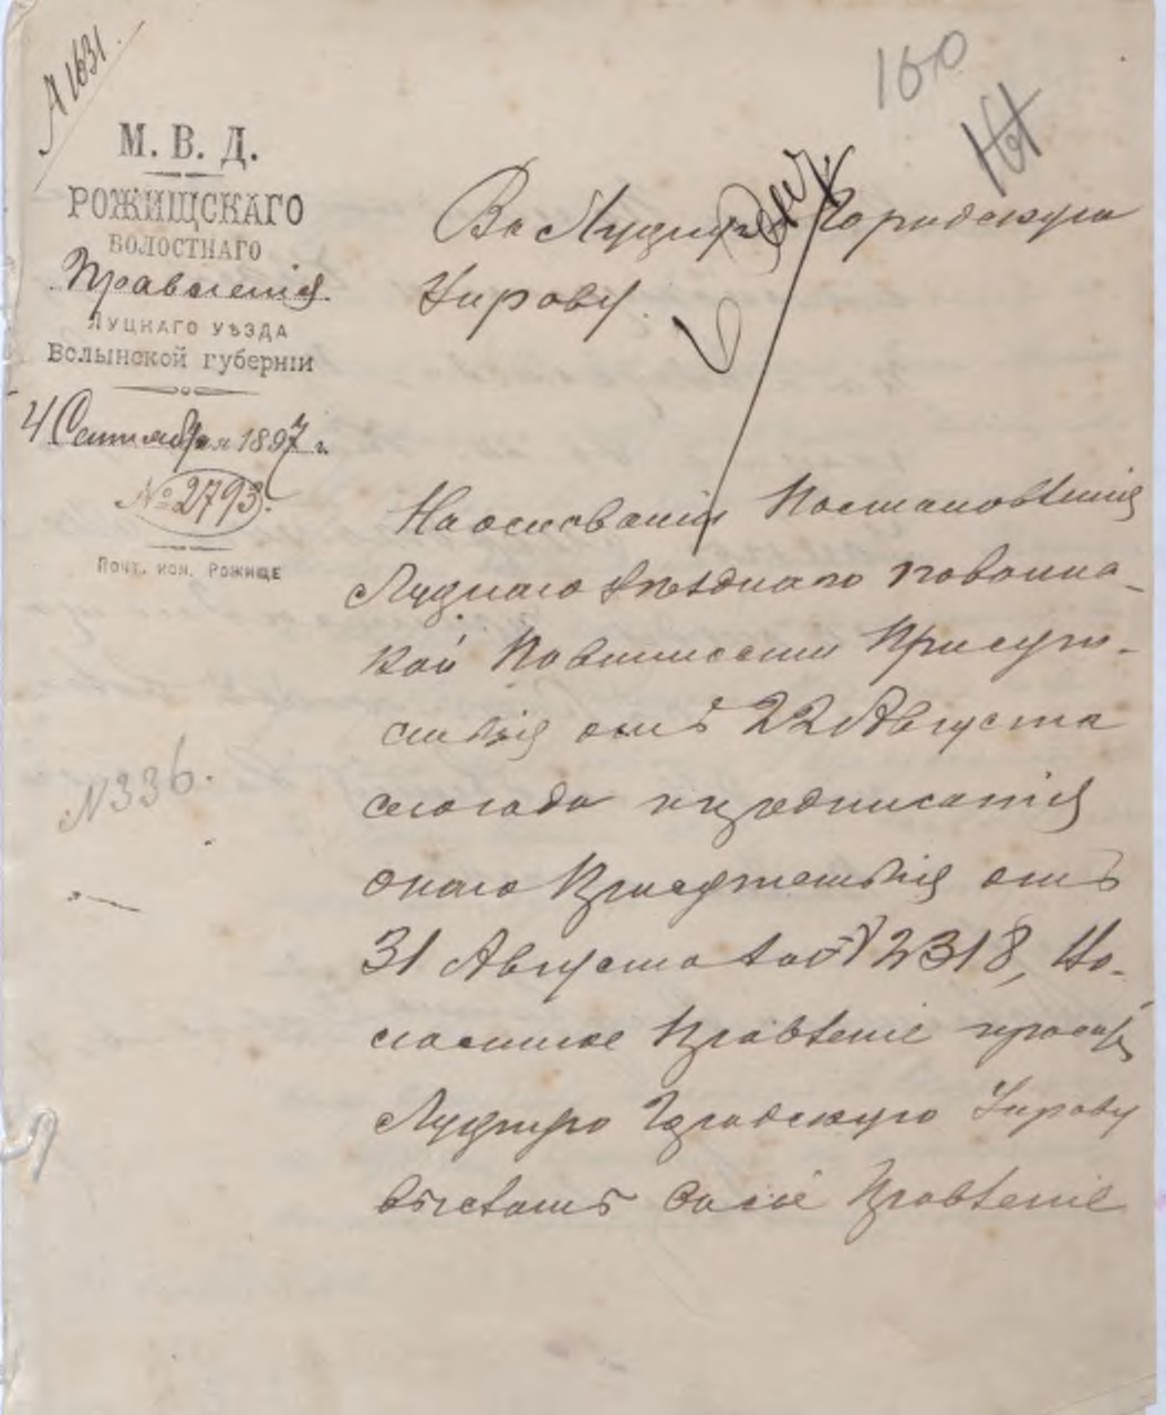 А 1631.
160
М. В. Д.
РОЖИЩСКАГО
ВОЛОСТНАГО
Правленія
ЛУЦКАГО УѢЗДА
Волынской губерніи
4 Сентября 1897 г.
№ 2793.
Почт. кон. РОЖИЩЕ
№ 336.
Въ Луцкую Городскую
Управу.
На основаніи Постановленія
Луцкаго Уѣзднаго по воинс-
кой Повинности Присут-
ствія отъ 22 Августа
сего года и предписанія
онаго Присутствія отъ
31 Августа за № 2318, Во-
лостное Правленіе проситъ
Луцкую Городскую Управу
выслать въ сіе Правленіе